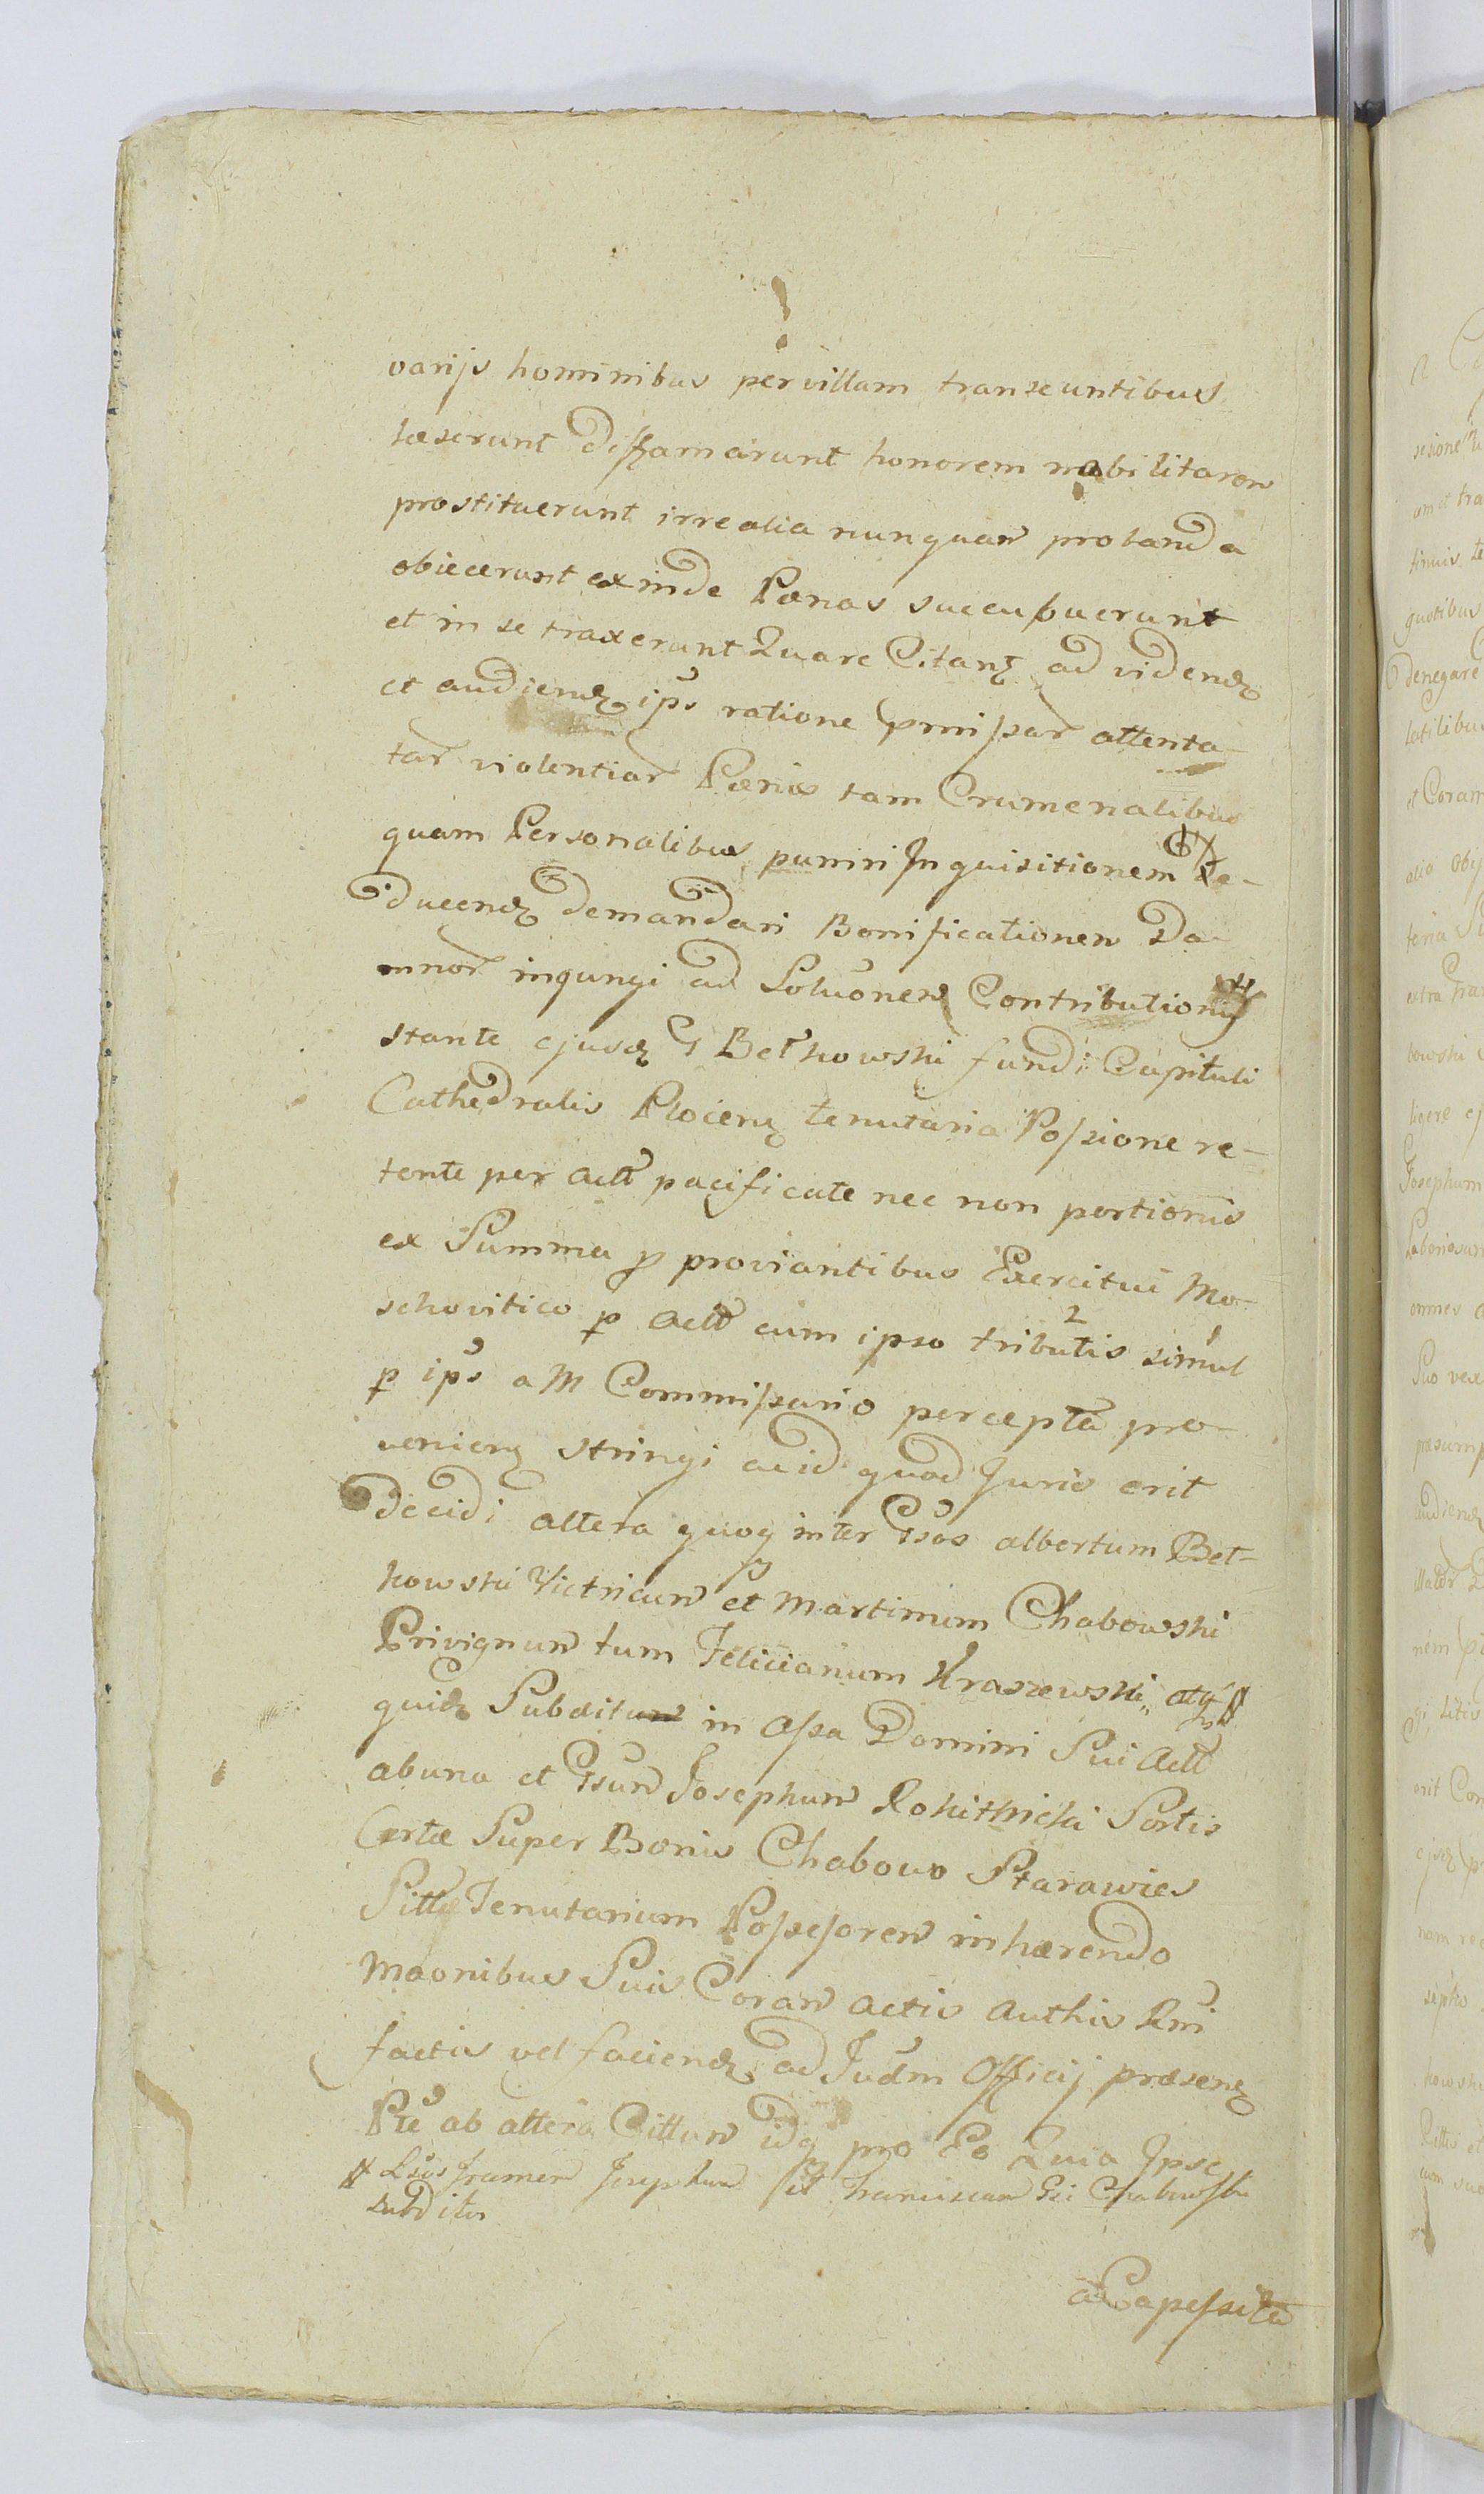 varijs hominibus per villam transeuntibus
læserunt diffamarunt honorem nobilitarem
prostituerunt irrealia nunquam probanda
obiecerunt exinde Pœnas succubuerunt
et in se traxerunt Quare Citanz ad videnz
et audienz ips ratione pmissar attenta-
tar violentiar Pœnis tam Crumenalibus
quam Personalibus puniri Inquisitionem de-
ducenz demandari Bonificationem Da-
mnor injungi ad Soluonem Contributionis
stante ejusz G Betkowski fundi Capituli
Cathedralis Plocenz tenutaria Possione re-
tente per Actt pacificate nec non portionis
ex Summa p proviantibus Exercitui Mo-
schovitico p Actt cum ipso tributis simul
p ips a M Commissario percepta pro-
venienz stringi ac id quod Juris erit
decidi altera quoq inter Gsos albertum Bet-
kowski Victricum et Martinum Chabowski
Privignum tum Felicianum Kraszewski atq #
quidz Subditum in Assa Domini Sui Actt
ab una et Gsum Josephum Rokitnicki Sortis
Certæ Super Bonis Chabowo Starawies
Sitte Tenutarium Possessorem inhærendo
Maonibus Suis Coram Actis Authis Rmi
factis vel facienz ad Judm Officij præsenz
Pte ab altera Cittum idq pro Eo Quia Ipse
# Lsos Josephum et Franciscum Gi Chabowski
subditos
a Capessita